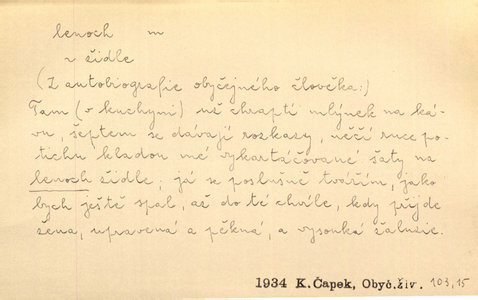 lenoch m
v židle
(Z autobiografie obyčejného člověka:)
Tam (v kuchyni) už chraptí mlýnek na ká-
vu, šeptem se dávají rozkazy, něčí ruce po-
tichu kladou mé vykartáčované šaty na
lenoch židle; já se poslušně tvářím, jako
bych ještě spal, až do té chvíle, kdy přijde
žena, upravená a pěkná, a vysouká žaluzie.
1934 K.Čapek, Obyč.živ. 103,15